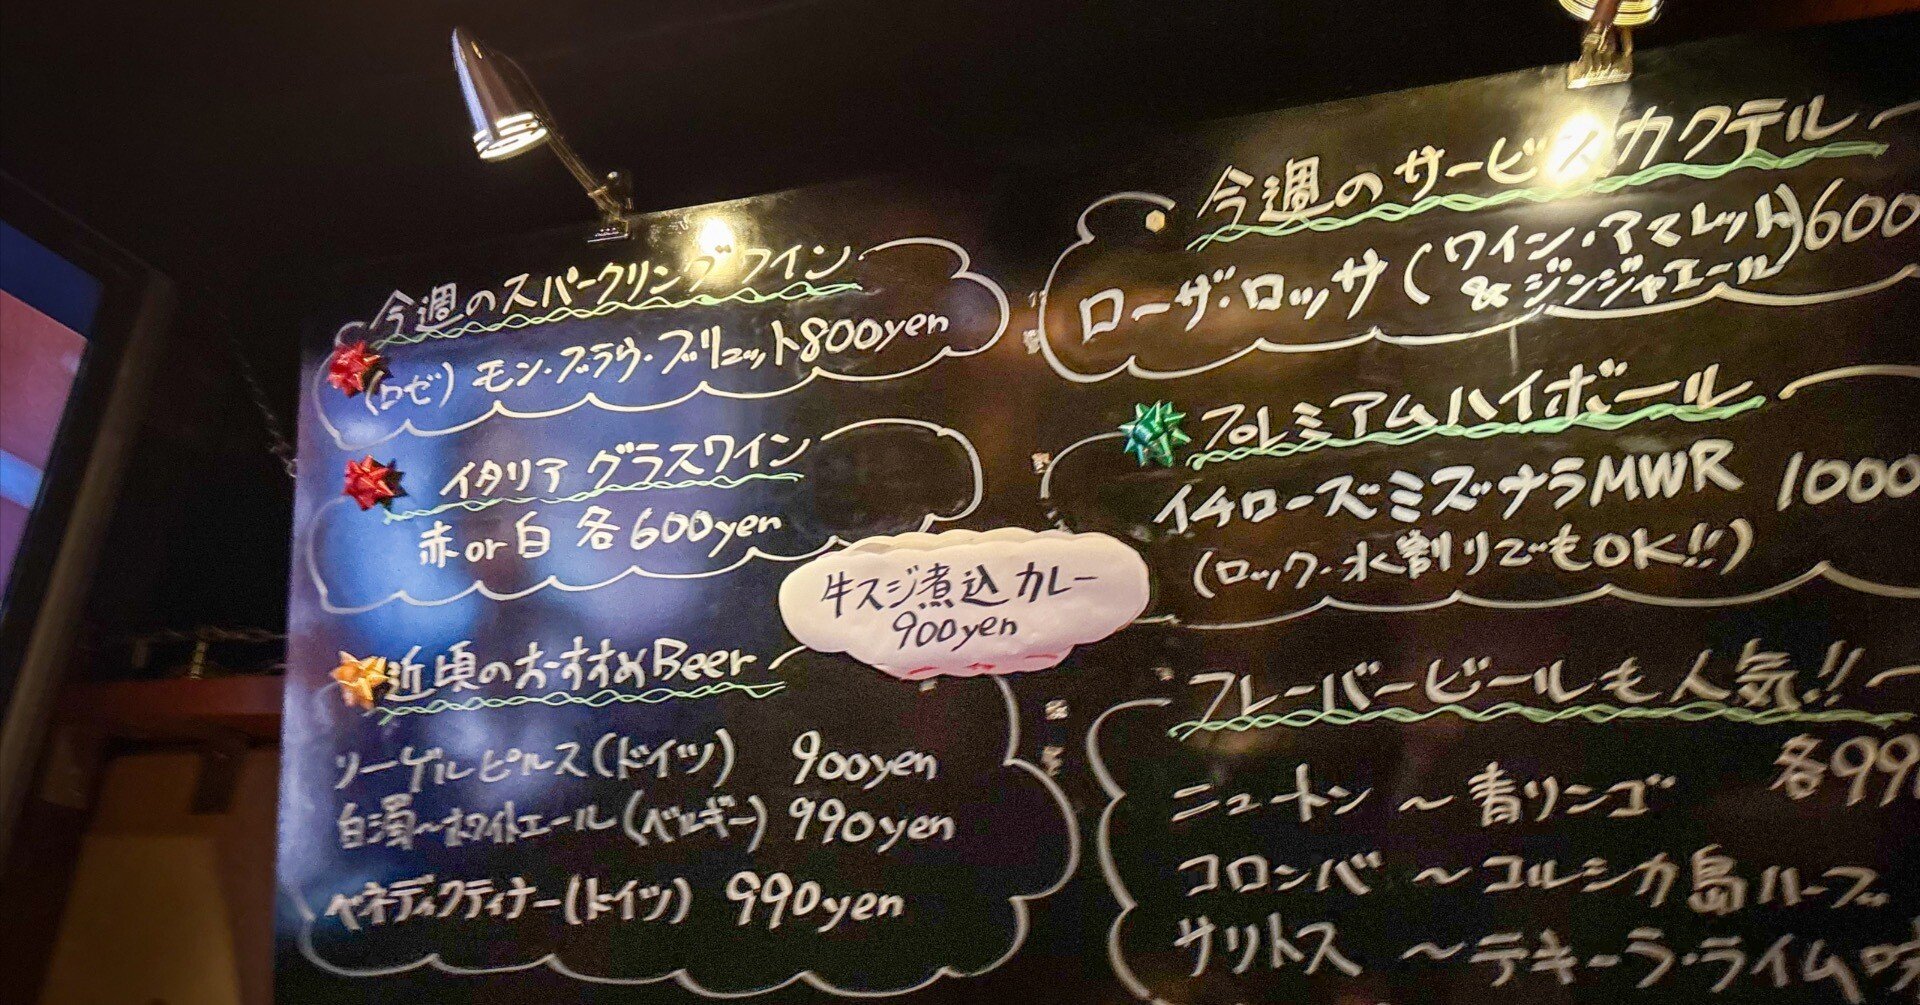 今週のスパークリングワイン
(ロゼ) モン・ブラヴ・ブリュット800yen
イタリア グラスワイン
赤or白 各600yen
近頃のおすすめBeer
ソーゲルピルス(ドイツ) 900yen
白濁〜ホワイトエール(ベルギー) 990yen
ベネディクティナー(ドイツ) 990yen
牛スジ煮込カレー
900yen
今週のサービスカクテル
ローザ・ロッサ(ワイン・アマレット)600
&ジンジャエール
プレミアムハイボール
イチローズミズナラMWR 1000
(ロック・水割りでもOK!!)
フレーバービールも人気!!
各99
ニュートン 〜青リンゴ
コロンバ 〜コルシカ島ハーブ
サリトス 〜テキーラ・ライム